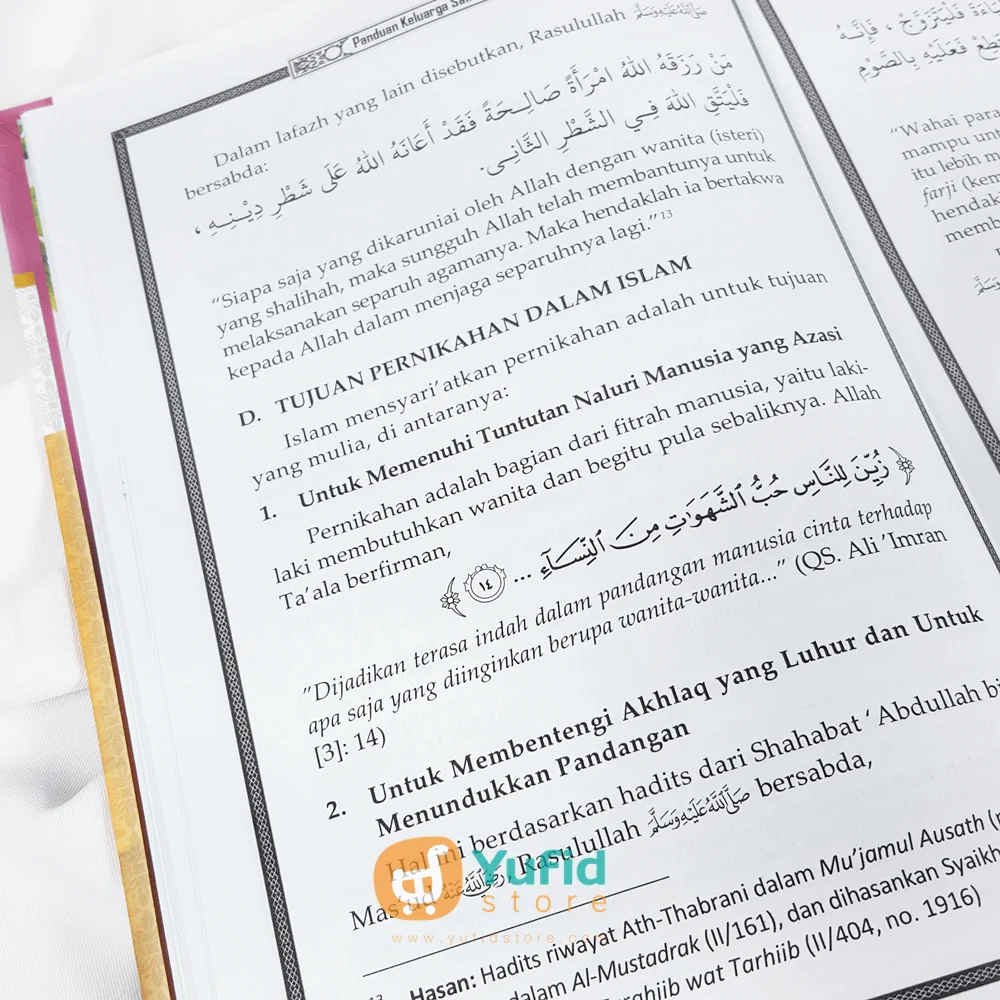 Panduan Keluarga
Dalam lafazh yang lain disebutkan, Rasulullah ﷺ
bersabda:
مَنْ رَزَقَهُ اللهُ امْرَأَةً صَالِحَةً فَقَدْ أَعَانَهُ اللهُ عَلَى شَطْرِ دِيْنِهِ ،
فَلْيَتَّقِ اللهَ فِي الشَّطْرِ الثَّانِى.
“Siapa saja yang dikaruniai oleh Allah dengan wanita (isteri)
yang shalihah, maka sungguh Allah telah membantunya untuk
melaksanakan separuh agamanya. Maka hendaklah ia bertakwa
kepada Allah dalam menjaga separuhnya lagi.”13
D. TUJUAN PERNIKAHAN DALAM ISLAM
Islam mensyari’atkan pernikahan adalah untuk tujuan
yang mulia, di antaranya:
1. Untuk Memenuhi Tuntutan Naluri Manusia yang Azasi
Pernikahan adalah bagian dari fitrah manusia, yaitu laki-
laki membutuhkan wanita dan begitu pula sebaliknya. Allah
Ta’ala berfirman,
﴿ زُيِّنَ لِلنَّاسِ حُبُّ ٱلشَّهَوَٰتِ مِنَ ٱلنِّسَآءِ ... ١٤ ﴾
"Dijadikan terasa indah dalam pandangan manusia cinta terhadap
apa saja yang diinginkan berupa wanita-wanita..." (QS. Ali ’Imran
[3]: 14)
2. Untuk Membentengi Akhlaq yang Luhur dan Untuk
Menundukkan Pandangan
Hal ini berdasarkan hadits dari Shahabat ‘Abdullah bi
Mas‘ud رضي الله عنه, Rasulullah ﷺ bersabda,
13 Hasan: Hadits riwayat Ath-Thabrani dalam Mu’jamul Ausath
dalam Al-Mustadrak (II/161), dan dihasankan Syaikh
wat Tarhiib (II/404, no. 1916)
فَلْيَتَزَوَّجْ ، فَإِنَّهُ
فَعَلَيْهِ بِالصَّوْمِ
“Wahai para
mampu un
itu lebih m
farji (kem
hendak
memb
Yufid
store
www.yufidstore.com